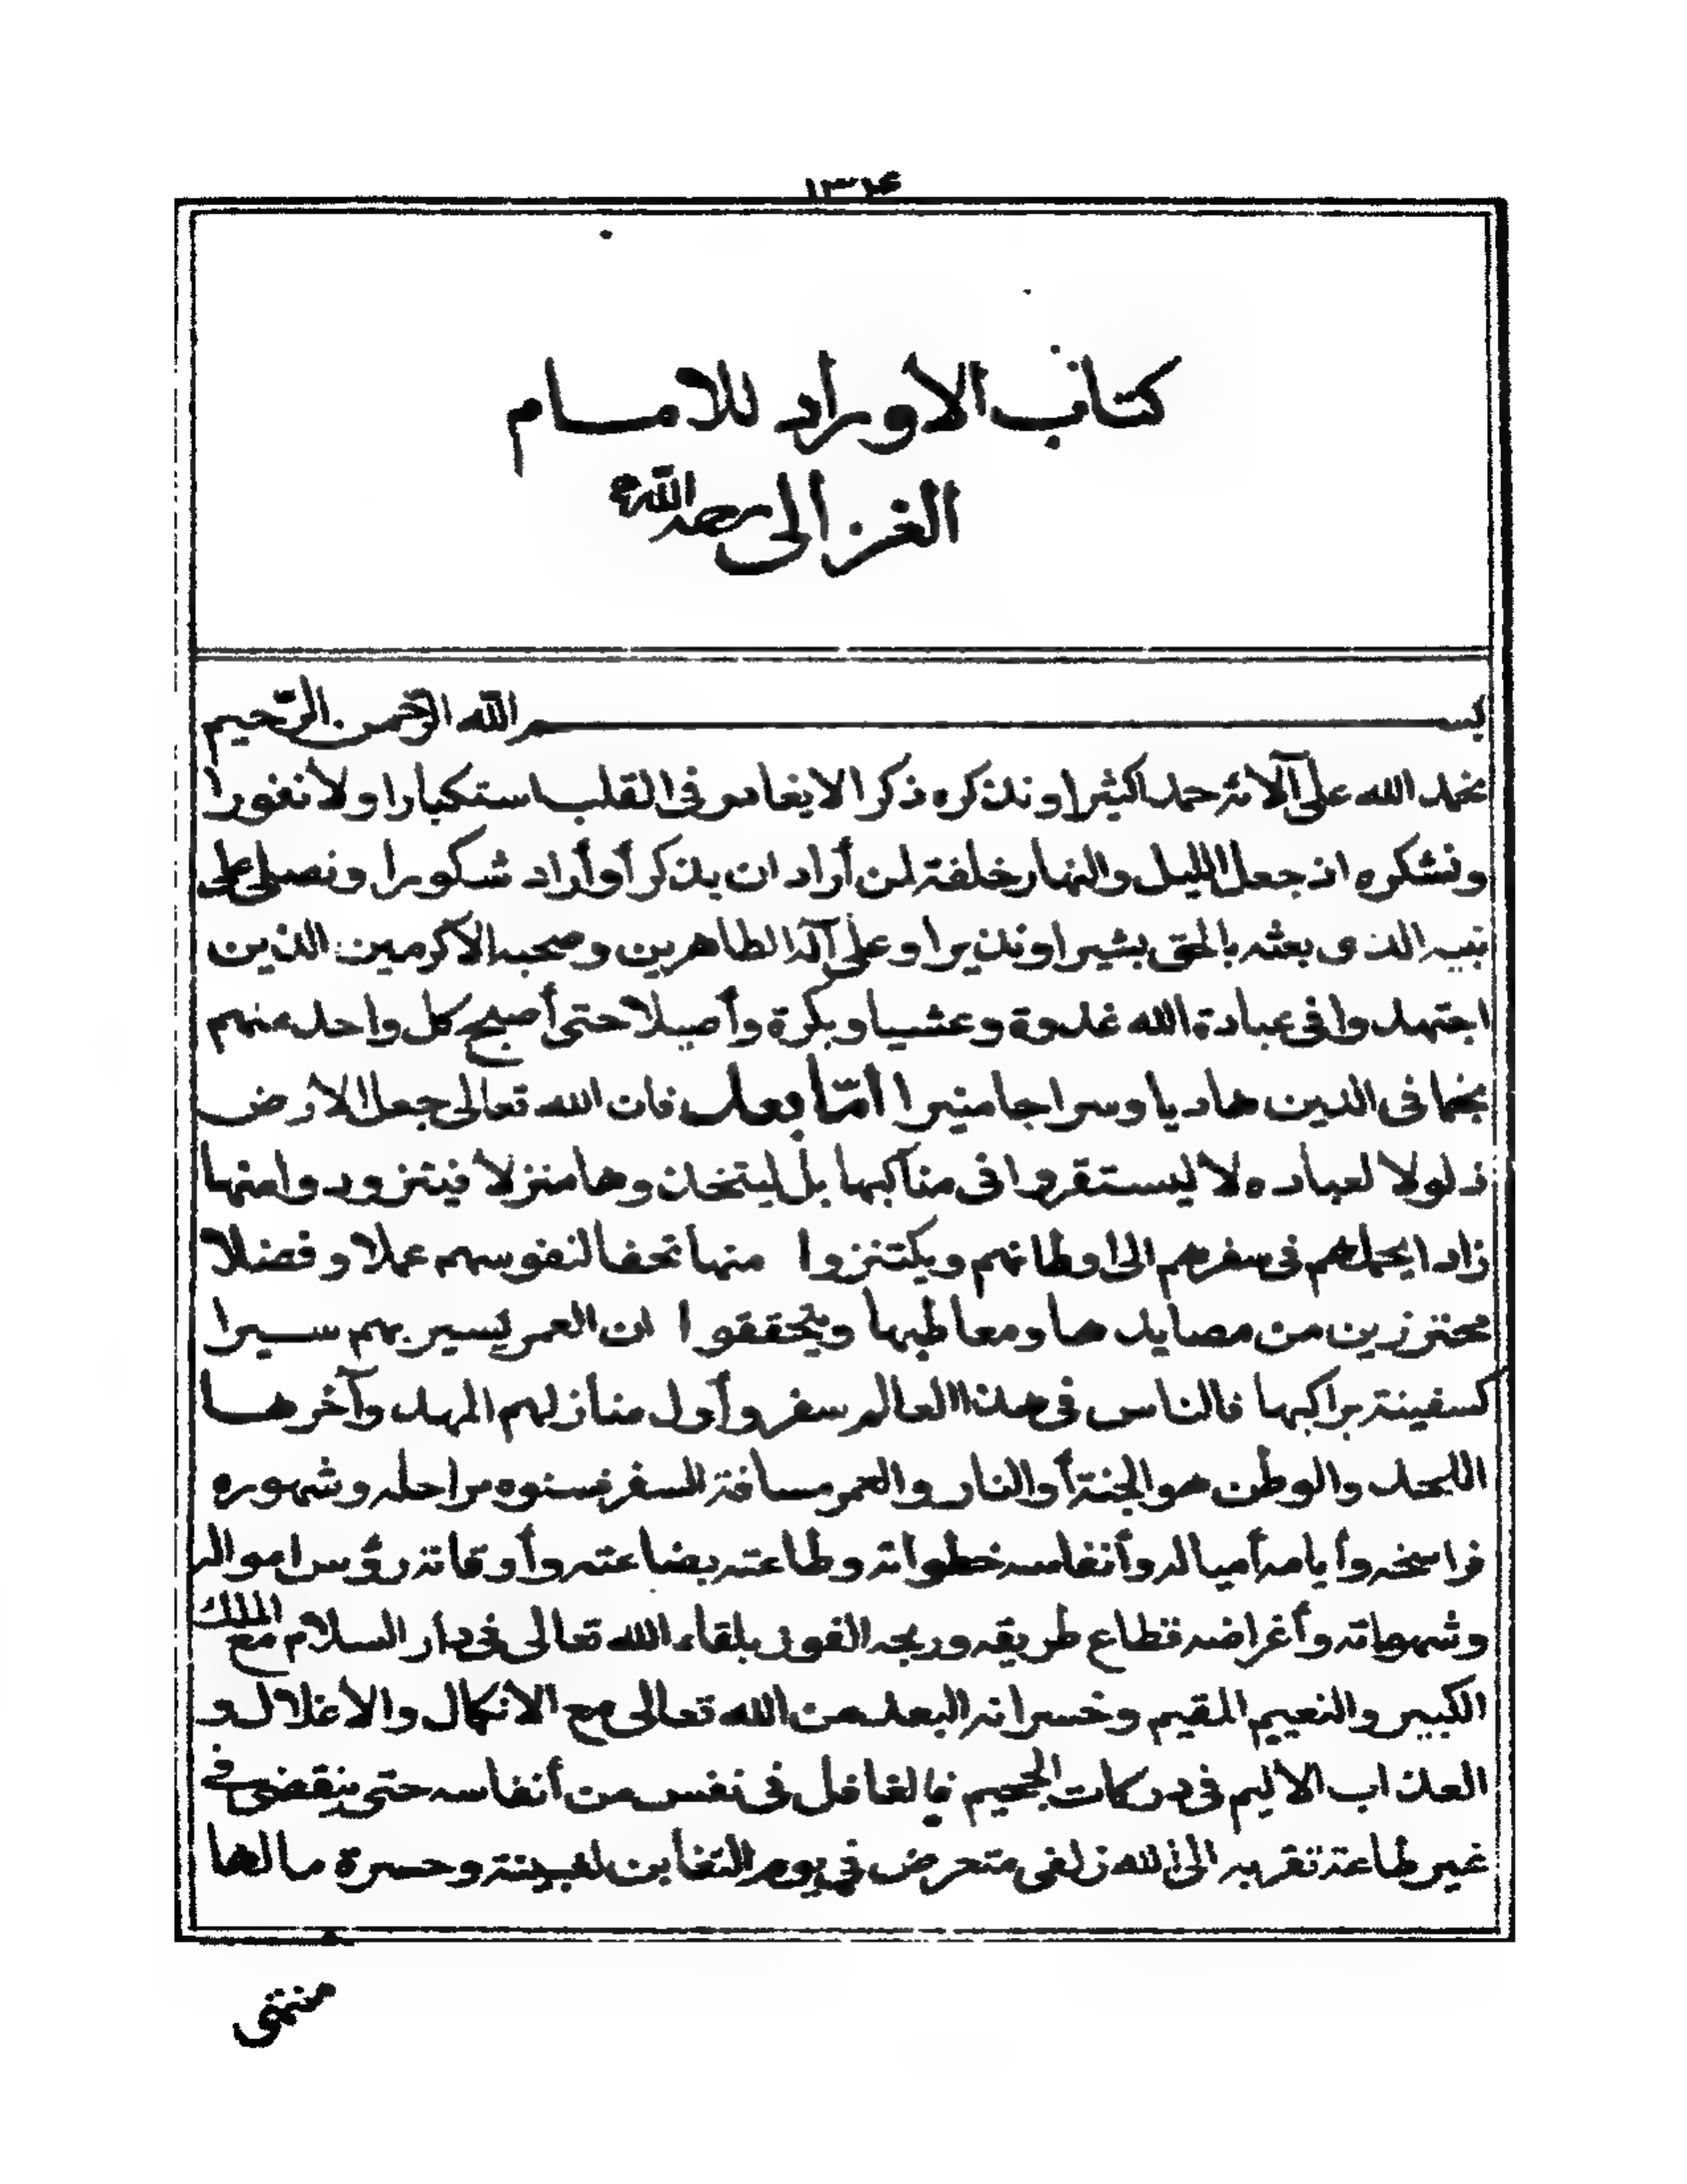 ١٣١٤
كتاب الاوراد للامام
الغزالى رحمه الله
بسم الله الرحمن الرحيم
نحمد الله على آلائه حمدا كثيرا ونذكره ذكرا لا يغادر فى القلب استكبارا ولا نفورا
ونشكره اذ جعل الليل والنهار خلفة لمن أراد ان يذكر أو أراد شكورا ونصلى على
نبيه الذى بعثه بالحق بشيرا ونذيرا وعلى آله الطاهرين وصحبه الاكرمين الذين
اجتهدوا فى عبادة الله غدوة وعشيا وبكرة وأصيلا حتى أصبح كل واحد منهم
نجما فى الدين هاديا وسراجا منيرا امّا بعد فان الله تعالى جعل الارض
ذلولا لعباده لا ليستقروا فى مناكبها بل ليتخذوها منزلا فيتزودوا منها
زادا يحملهم فى سفرهم الى اوطانهم ويكتنزوا منها تحفا لنفوسهم عملا وفضلا
محترزين من مصايدها ومعاطبها ويتحققوا ان العمر يسير بهم سيرا
كسفينة براكبها فالناس فى هذا العالم سفر وأول منازلهم المهد وآخرها
اللحد والوطن هو الجنة أو النار والعمر مسافة السفر فسنوه مراحله وشهوره
فراسخه وأيامه أمياله وأنفاسه خطواته وطاعته بضاعته وأوقاته رؤس امواله
وشهواته وأغراضه قطاع طريقه وربحه الفوز بلقاء الله تعالى فى دار السلام مع الملك
الكبير والنعيم المقيم وخسرانه البعد من الله تعالى مع الانكال والاغلال و
العذاب الاليم فى دركات الجحيم فالغافل فى نفس من أنفاسه حتى ينقضى فى
غير طاعة تقربه الى الله زلفى متعرض فى يوم التغابن لغبينة وحسرة ما لها
منتهى